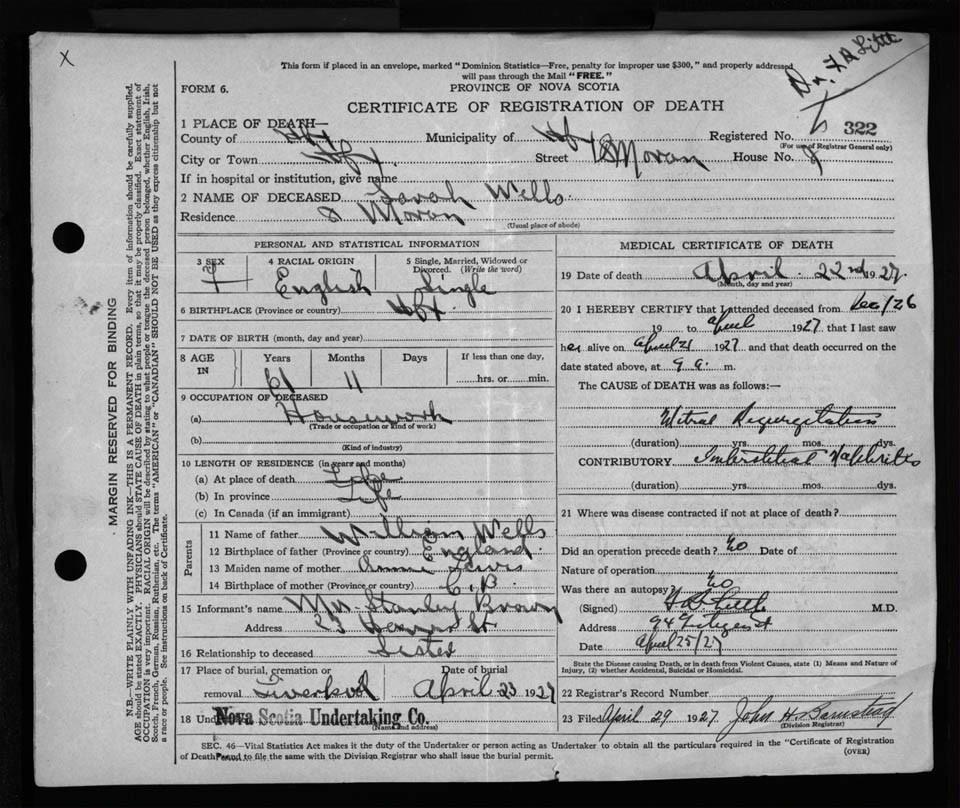 X
Dr. F A Little
This form if placed in an envelope, marked "Dominion Statistics—Free, penalty for improper use $300," and properly addressed
will pass through the Mail "FREE."
FORM 6.
PROVINCE OF NOVA SCOTIA
CERTIFICATE OF REGISTRATION OF DEATH
1 PLACE OF DEATH—
County of Hfx Municipality of Hfx Registered No. 322
(For use of Registrar General only)
City or Town Hfx. Street Moran House No. 8
If in hospital or institution, give name
2 NAME OF DECEASED Sarah Wells
Residence 8 Moran
(Usual place of abode)
PERSONAL AND STATISTICAL INFORMATION
3 SEX 4 RACIAL ORIGIN 5 Single, Married, Widowed or
Divorced. (Write the word)
F English Single
6 BIRTHPLACE (Province or country) Hfx
7 DATE OF BIRTH (month, day and year)
8 AGE IN Years Months Days If less than one day,
61 11 hrs. or min.
9 OCCUPATION OF DECEASED
(a) Housework
(Trade or occupation or Kind of work)
(b)
(Kind of industry)
10 LENGTH OF RESIDENCE (in years and months)
(a) At place of death Life
(b) In province Life
(c) In Canada (if an immigrant)
Parents
11 Name of father William Wells
12 Birthplace of father (Province or country) England
13 Maiden name of mother Annie Lewis
14 Birthplace of mother (Province or country) C. B.
15 Informant's name Mrs Stanley Brown
Address 23 St
16 Relationship to deceased Sister
17 Place of burial, cremation or Date of burial
removal Liverpool April 23 1927
18 Und Nova Scotia Undertaking Co.
(Name and address)
MEDICAL CERTIFICATE OF DEATH
19 Date of death April 22nd 1927.
(Month, day and year)
20 I HEREBY CERTIFY that I attended deceased from Dec/26
19 to April 1927 that I last saw
her alive on April 21 1927 and that death occurred on the
date stated above, at 9 a. m.
The CAUSE OF DEATH was as follows:—
Mitral Regurgitation
(duration) yrs. mos. dys.
CONTRIBUTORY Interstitial Nephritis
(duration) yrs. mos. dys.
21 Where was disease contracted if not at place of death?
Did an operation precede death? No Date of
Nature of operation
Was there an autopsy? No
(Signed) F A Little M.D.
Address 94
Date April 25/27
State the Disease causing Death, or in death from Violent Causes, state (1) Means and Nature of
Injury, (2) whether Accidental, Suicidal or Homicidal.
22 Registrar's Record Number
23 Filed April 29 1927 John H. Barnstead
(Division Registrar)
SEC. 46—Vital Statistics Act makes it the duty of the Undertaker or person acting as Undertaker to obtain all the particulars required in the "Certificate of Registration
of Death to file the same with the Division Registrar who shall issue the burial permit.
(OVER)
MARGIN RESERVED FOR BINDING
N.B.—WRITE PLAINLY WITH UNFADING INK—THIS IS A PERMANENT RECORD. Every item of information should be carefully supplied.
AGE should be stated EXACTLY. PHYSICIANS should STATE CAUSE OF DEATH in plain terms, so that it may be properly classified. Exact statement of
OCCUPATION is very important. RACIAL ORIGIN will be described by stating to what people or tongue the deceased person belonged, whether English, Irish,
Scotch, French, German, Russian, Ruthenian, etc. The terms "AMERICAN" or "CANADIAN" SHOULD NOT BE USED as they express citizenship but not
a race or people. See instructions on back of Certificate.